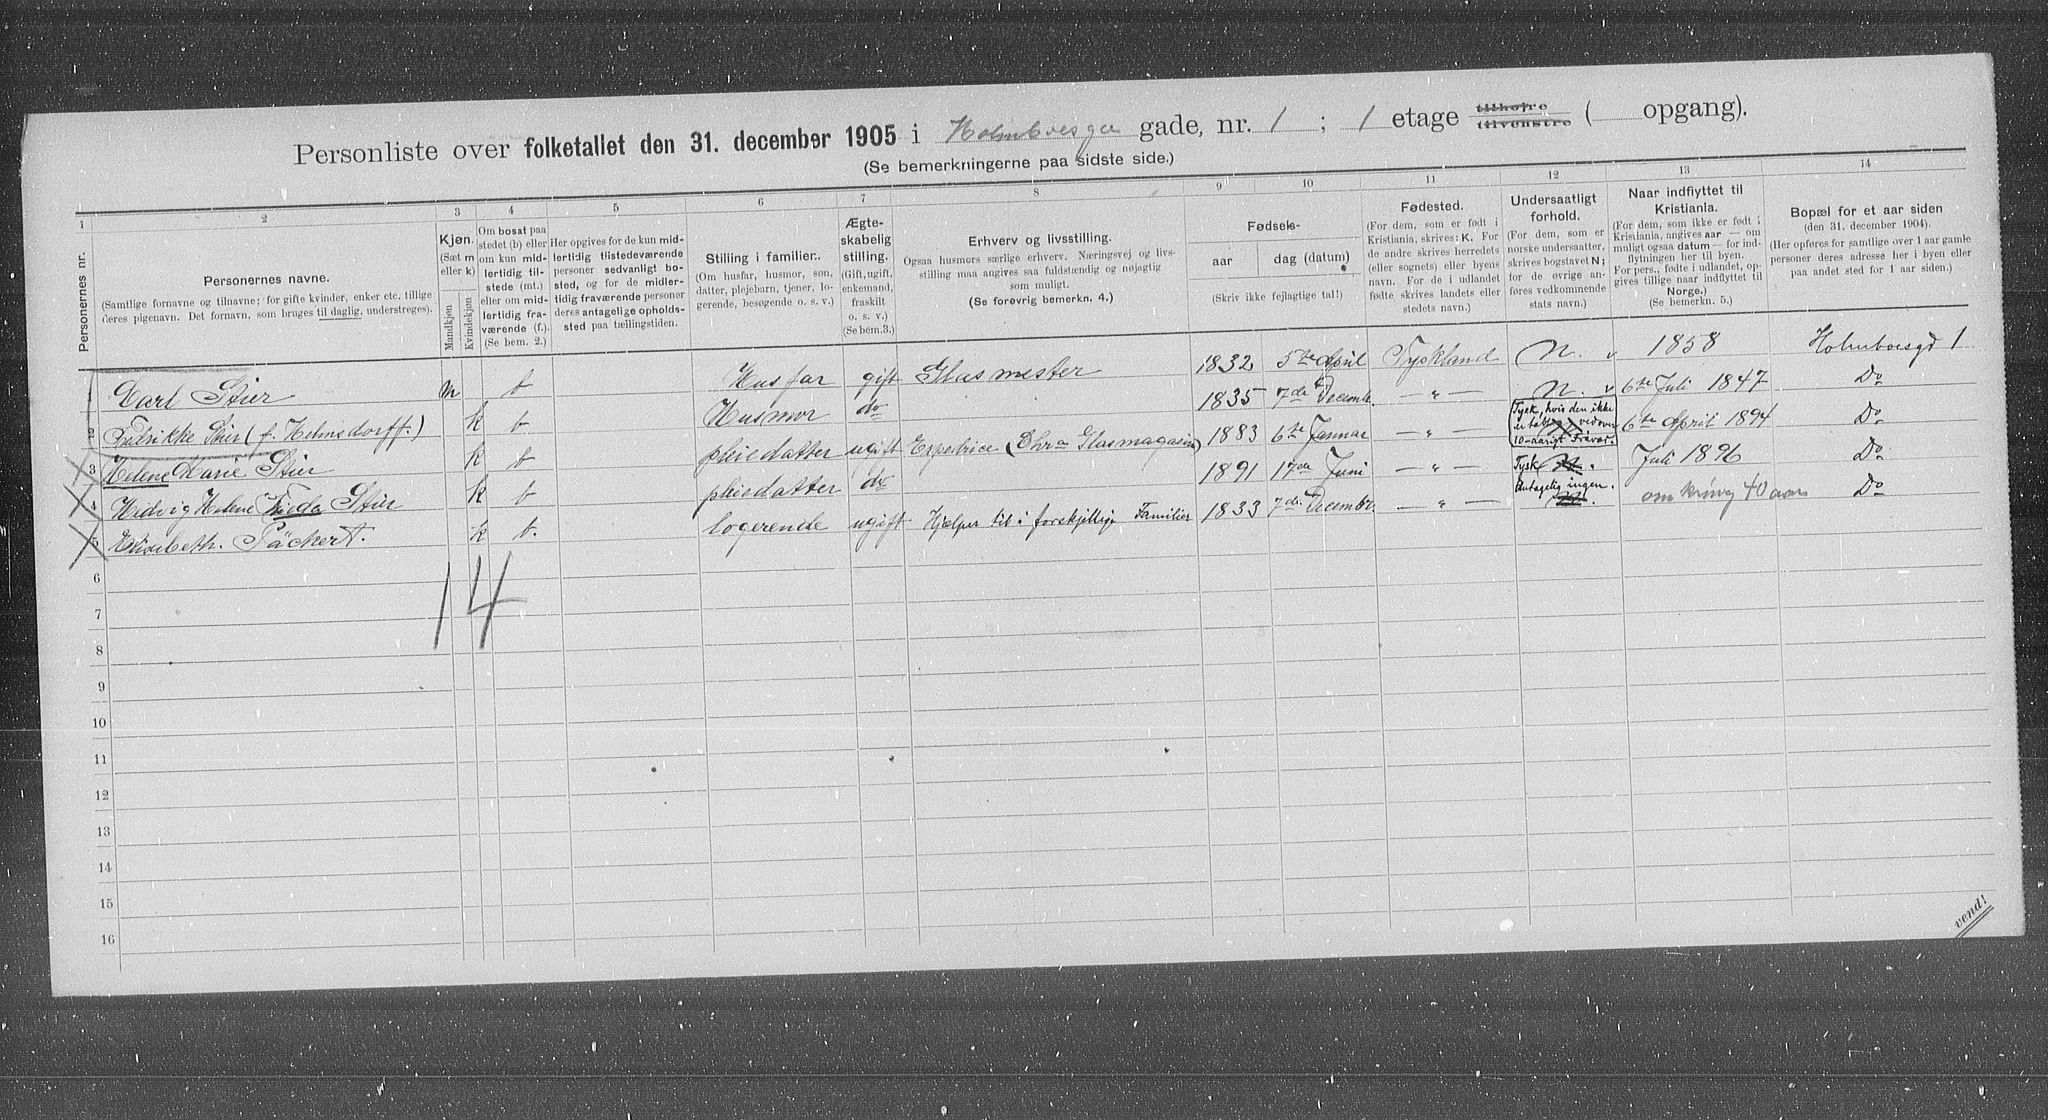 Personliste over folketallet den 31. december 1905 i Holmboesga gade, nr. 1 ; 1 etage tilhøjre tilvenstre ( opgang).
(Se bemerkningerne paa sidste side.)
1 2 3 4 5 6 7 8 9 10 11 12 13 14
Personernes nr.
Personernes navne.
(Samtlige fornavne og tilnavne; for gifte kvinder, enker etc. tillige
deres pigenavn. Det fornavn, som bruges til daglig, understreges).
Kjøn.
(Sæt m
eller k)
Mandkjøn
Kvindekjøn
Om bosat paa
stedet (b) eller
om kun mid-
lertidig til-
stede (mt.)
eller om mid-
lertidig fra-
værende (f.)
(Se bem. 2.)
Her opgives for de kun mid-
lertidig tilstedeværende
personer sedvanligt bo-
sted, og for de midler-
tidig fraværende personer
deres antagelige opholds-
sted paa tællingstiden.
Stilling i familien.
(Om husfar, husmor, søn,
datter, plejebarn, tjener, lo-
gerende, besøgende o. s. v.)
Ægte-
skabelig
stilling.
(Gift, ugift,
enkemand,
fraskilt
o. s. v.)
(Se bem. 3.)
Erhverv og livsstilling.
Ogsaa husmors særlige erhverv. Næringsvej og livs-
stilling maa angives saa fuldstændig og nøjagtig
som muligt.
(Se forøvrig bemerkn. 4.)
Fødsels-
aar dag (datum)
(Skriv ikke fejlagtige tal!)
Fødested.
(For dem, som er født i
Kristiania, skrives: K. For
de andre skrives herredets
(eller sognets) eller byens
navn. For de i udlandet
fødte skrives landets eller
stedets navn.)
Undersaatligt
forhold.
(For dem, som er
norske undersaatter,
skrives bogstavet N;
for de øvrige an-
føres vedkommende
stats navn.)
Naar indflyttet til
Kristiania.
(For dem, som ikke er født i
Kristiania, angives aar — om
muligt ogsaa datum — for ind-
flytningen her til byen.
For pers., fødte i udlandet, op-
gives tillige naar indflyttet til
Norge.)
(Se bemerkn. 5.)
Bopæl for et aar siden
(den 31. december 1904).
(Her opføres for samtlige over 1 aar gamle
personer deres adresse her i byen eller
paa andet sted for 1 aar siden.)
1 Carl Stier m b Husfar gift Glasmester 1832 5te April Tyskland N. v 1858 Holmboesgd 1
2 Fredrikke Stier (f. Helmsdorff.) k b Husmor do 1835 7de Decembr. — " — N. v 6te Juli 1847 Do
3 Helene Marie Stier k b pleiedatter ugift Expeditrice (Chra Glasmagasin) 1883 6te Januar — " — Tysk, hvis den ikke er tabt ved over 10-aarigt Fravær. 6te April 1894 Do
4 Hedvig Helene Frieda Stier k b pleiedatter do 1891 17de Juni — " — Tysk N. Juli 1896 Do
5 Elisebeth. Päckert. k b. logerende ugift Hjælper til i forskjellige Familier 1833 7de Decembr. — " — Antagelig ingen. N. omkring 40 aar Do
6
7
8
1 4
9
10
11
12
13
14
15
16
vend!